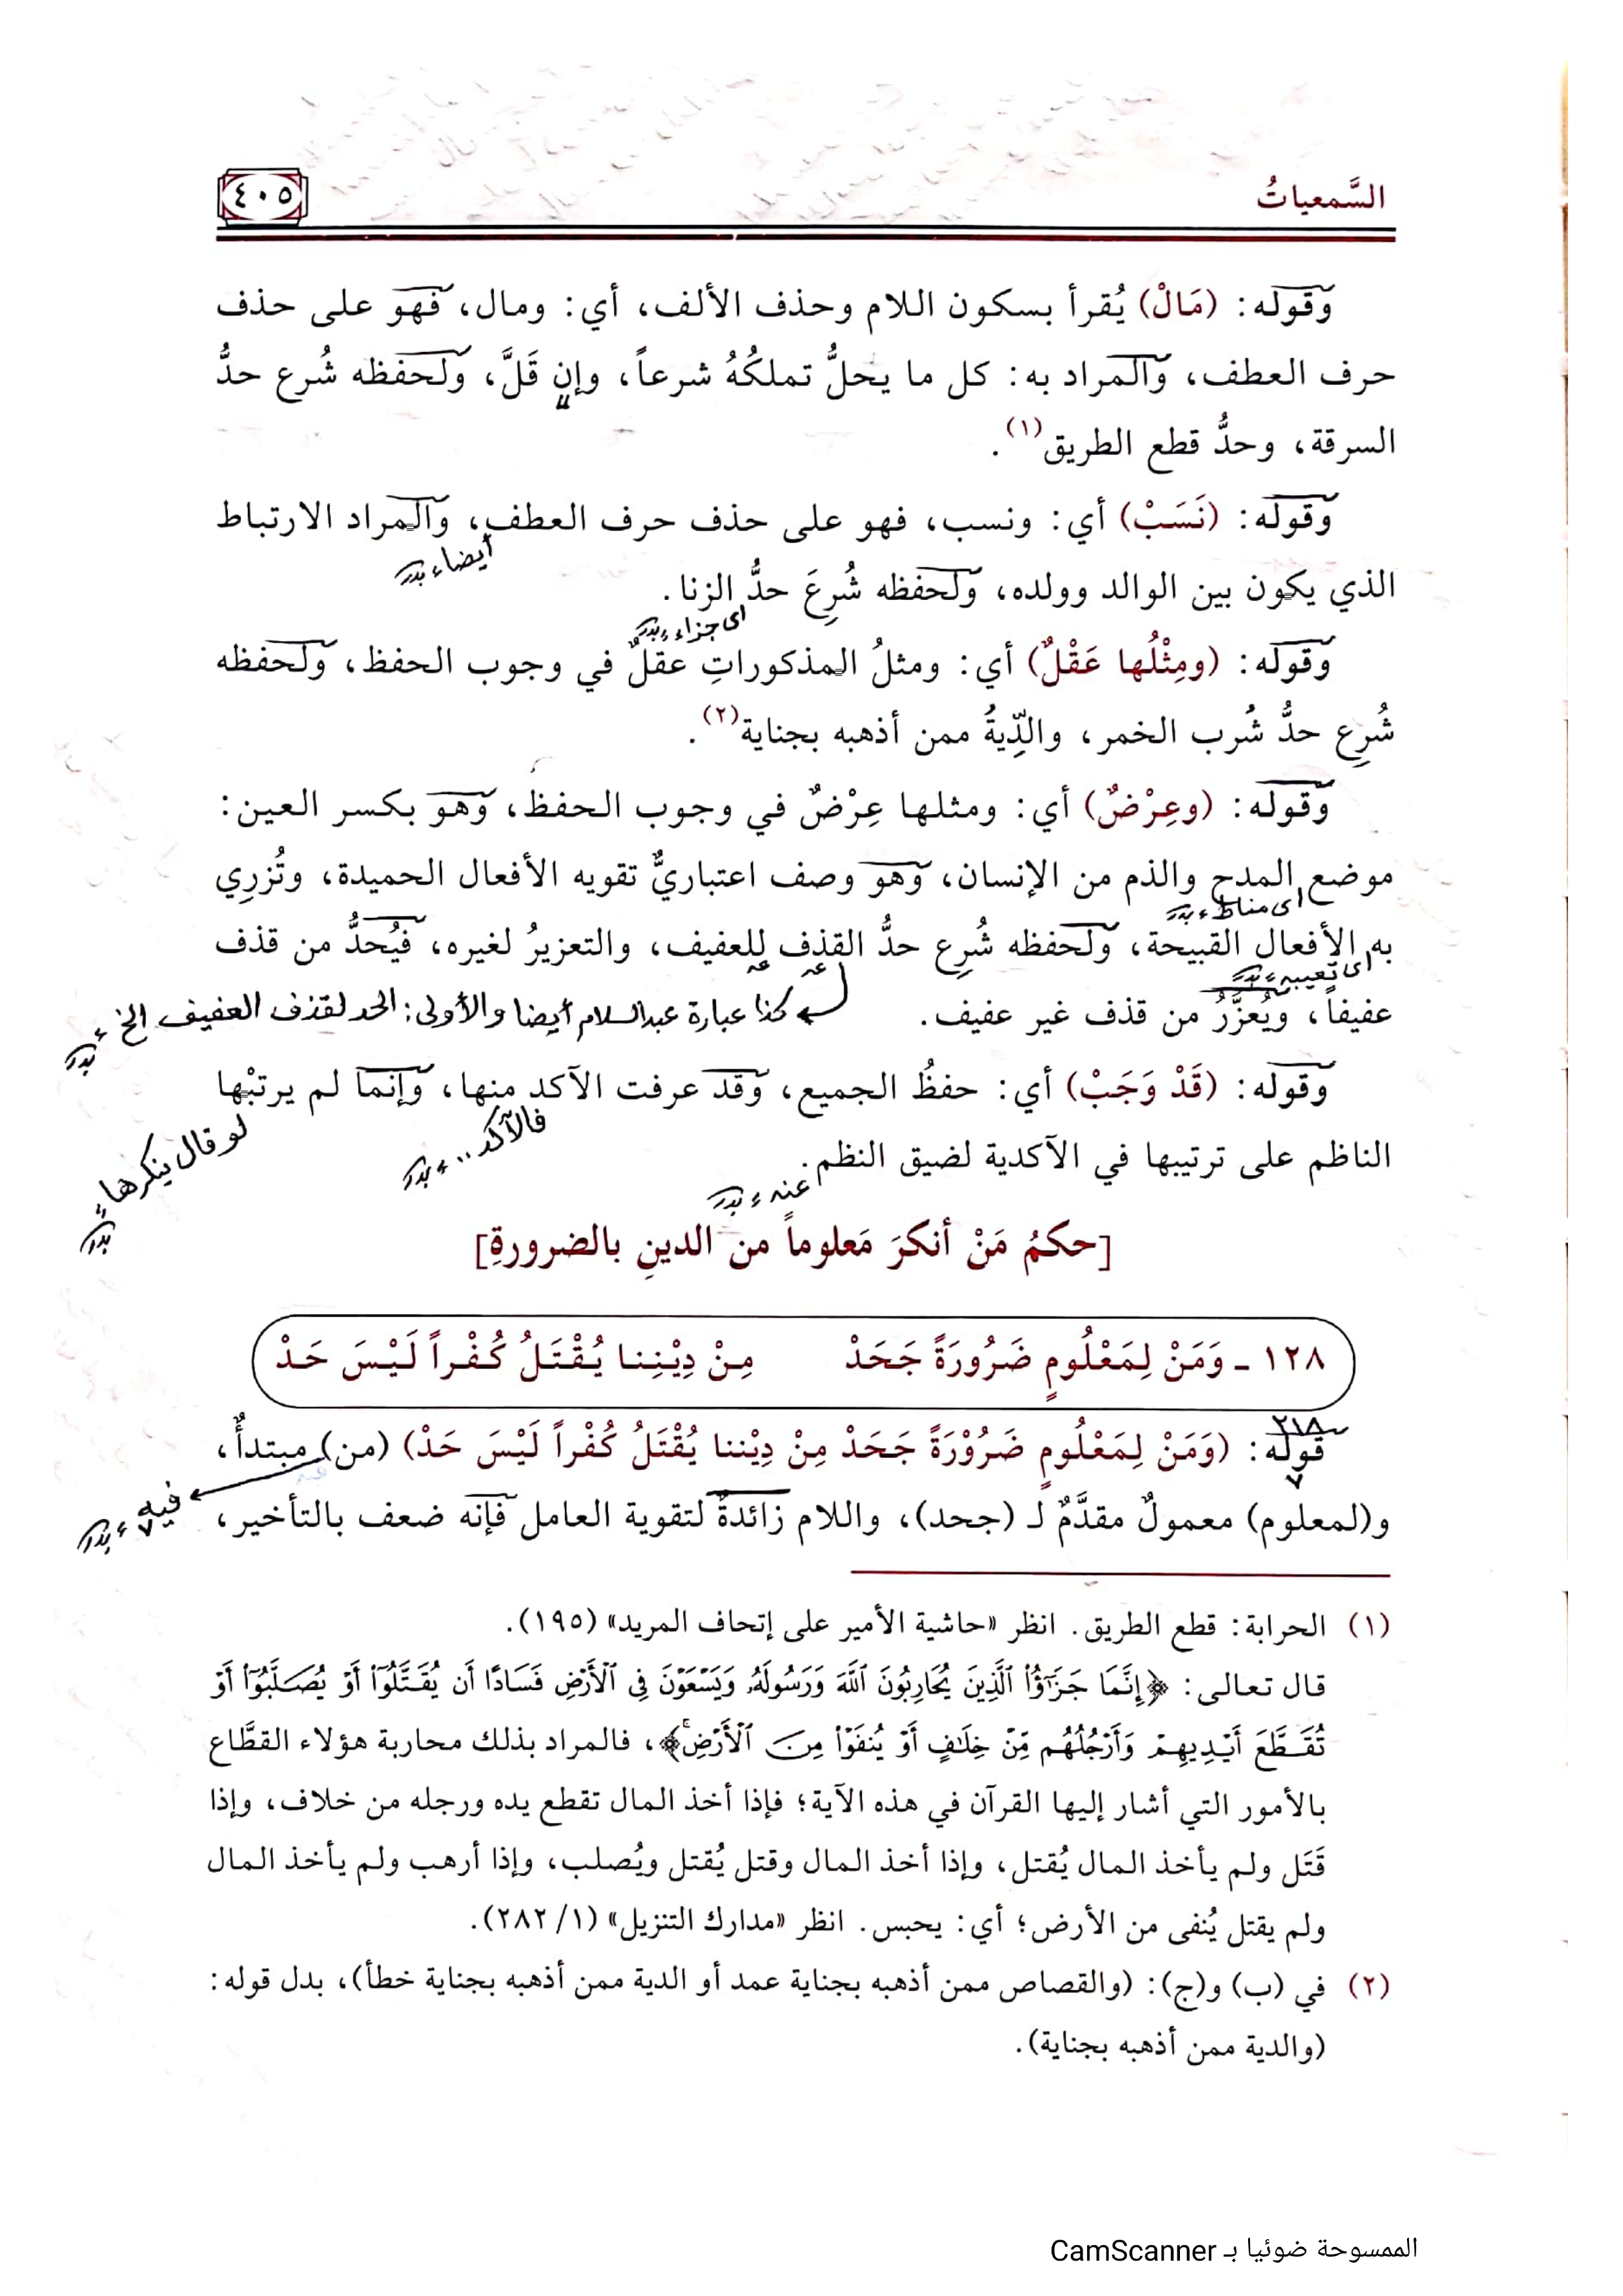 السَّمعياتُ
٤٠٥
وقوله: (مَالْ) يُقرأ بسكون اللام وحذف الألف، أي: ومال، فهو على حذف
حرف العطف، والمراد به: كل ما يحلُّ تملكُهُ شرعاً، وإن قَلَّ، ولحفظه شُرع حدُّ
السرقة، وحدُّ قطع الطريق(١).
وقوله: (نَسَبْ) أي: ونسب، فهو على حذف حرف العطف، والمراد الارتباط
أيضاء بدر
الذي يكون بين الوالد وولده، ولحفظه شُرِعَ حدُّ الزنا.
اى جزاء، بدر
وقوله: (ومِثْلُها عَقْلٌ) أي: ومثلُ المذكوراتِ عقلٌ في وجوب الحفظ، ولحفظه
شُرِع حدُّ شُرب الخمر، والدِّيةُ ممن أذهبه بجناية(٢).
وقوله: (وعِرْضٌ) أي: ومثلها عِرْضٌ في وجوب الحفظ، وهو بكسر العين:
موضع المدح والذم من الإنسان، وهو وصف اعتباريٌّ تقويه الأفعال الحميدة، وتُزرِي
اى مناط، بدر
به الأفعال القبيحة، ولحفظه شُرِع حدُّ القذف للعفيف، والتعزيرُ لغيره، فيُحدُّ من قذف
اى تعيبه، بدر
عفيفاً، ويُعزَّرُ من قذف غير عفيف.
كذا عبارة عبدالسلام أيضا والأولى: الحد لقذف العفيف الخ، بدر
وقوله: (قَدْ وَجَبْ) أي: حفظُ الجميع، وقد عرفت الآكد منها، وإنما لم يرتبْها
فالآكد.. ، بدر
لو قال ينكرها= بدر
الناظم على ترتيبها في الآكدية لضيق النظم.
عنه، بدر
[حكمُ مَنْ أنكرَ مَعلوماً من الدينِ بالضرورةِ]
١٢٨ - وَمَنْ لِمَعْلُومٍ ضَرُورَةً جَحَدْ مِنْ دِيْنِنا يُقْتَلُ كُفْراً لَيْسَ حَدْ
٢١٨
قوله: (وَمَنْ لِمَعْلُومٍ ضَرُوْرَةً جَحَدْ مِنْ دِيْننا يُقْتَلُ كُفْراً لَيْسَ حَدْ) (من) مبتدأٌ،
فيه، بدر
و(لمعلوم) معمولٌ مقدَّمٌ لـ (جحد)، واللام زائدةٌ لتقوية العامل فإنه ضعف بالتأخير،
(١) الحرابة: قطع الطريق. انظر «حاشية الأمير على إتحاف المريد» (١٩٥).
قال تعالى: ﴿إِنَّمَا جَزَٰٓؤُا۟ ٱلَّذِينَ يُحَارِبُونَ ٱللَّهَ وَرَسُولَهُۥ وَيَسْعَوْنَ فِى ٱلْأَرْضِ فَسَادًا أَن يُقَتَّلُوٓا۟ أَوْ يُصَلَّبُوٓا۟ أَوْ
تُقَطَّعَ أَيْدِيهِمْ وَأَرْجُلُهُم مِّنْ خِلَٰفٍ أَوْ يُنفَوْا۟ مِنَ ٱلْأَرْضِ﴾، فالمراد بذلك محاربة هؤلاء القطَّاع
بالأمور التي أشار إليها القرآن في هذه الآية؛ فإذا أخذ المال تقطع يده ورجله من خلاف، وإذا
قَتَل ولم يأخذ المال يُقتل، وإذا أخذ المال وقتل يُقتل ويُصلب، وإذا أرهب ولم يأخذ المال
ولم يقتل يُنفى من الأرض؛ أي: يحبس. انظر «مدارك التنزيل» (١/ ٢٨٢).
(٢) في (ب) و(ج): (والقصاص ممن أذهبه بجناية عمد أو الدية ممن أذهبه بجناية خطأ)، بدل قوله:
(والدية ممن أذهبه بجناية).
الممسوحة ضوئيا بـ CamScanner